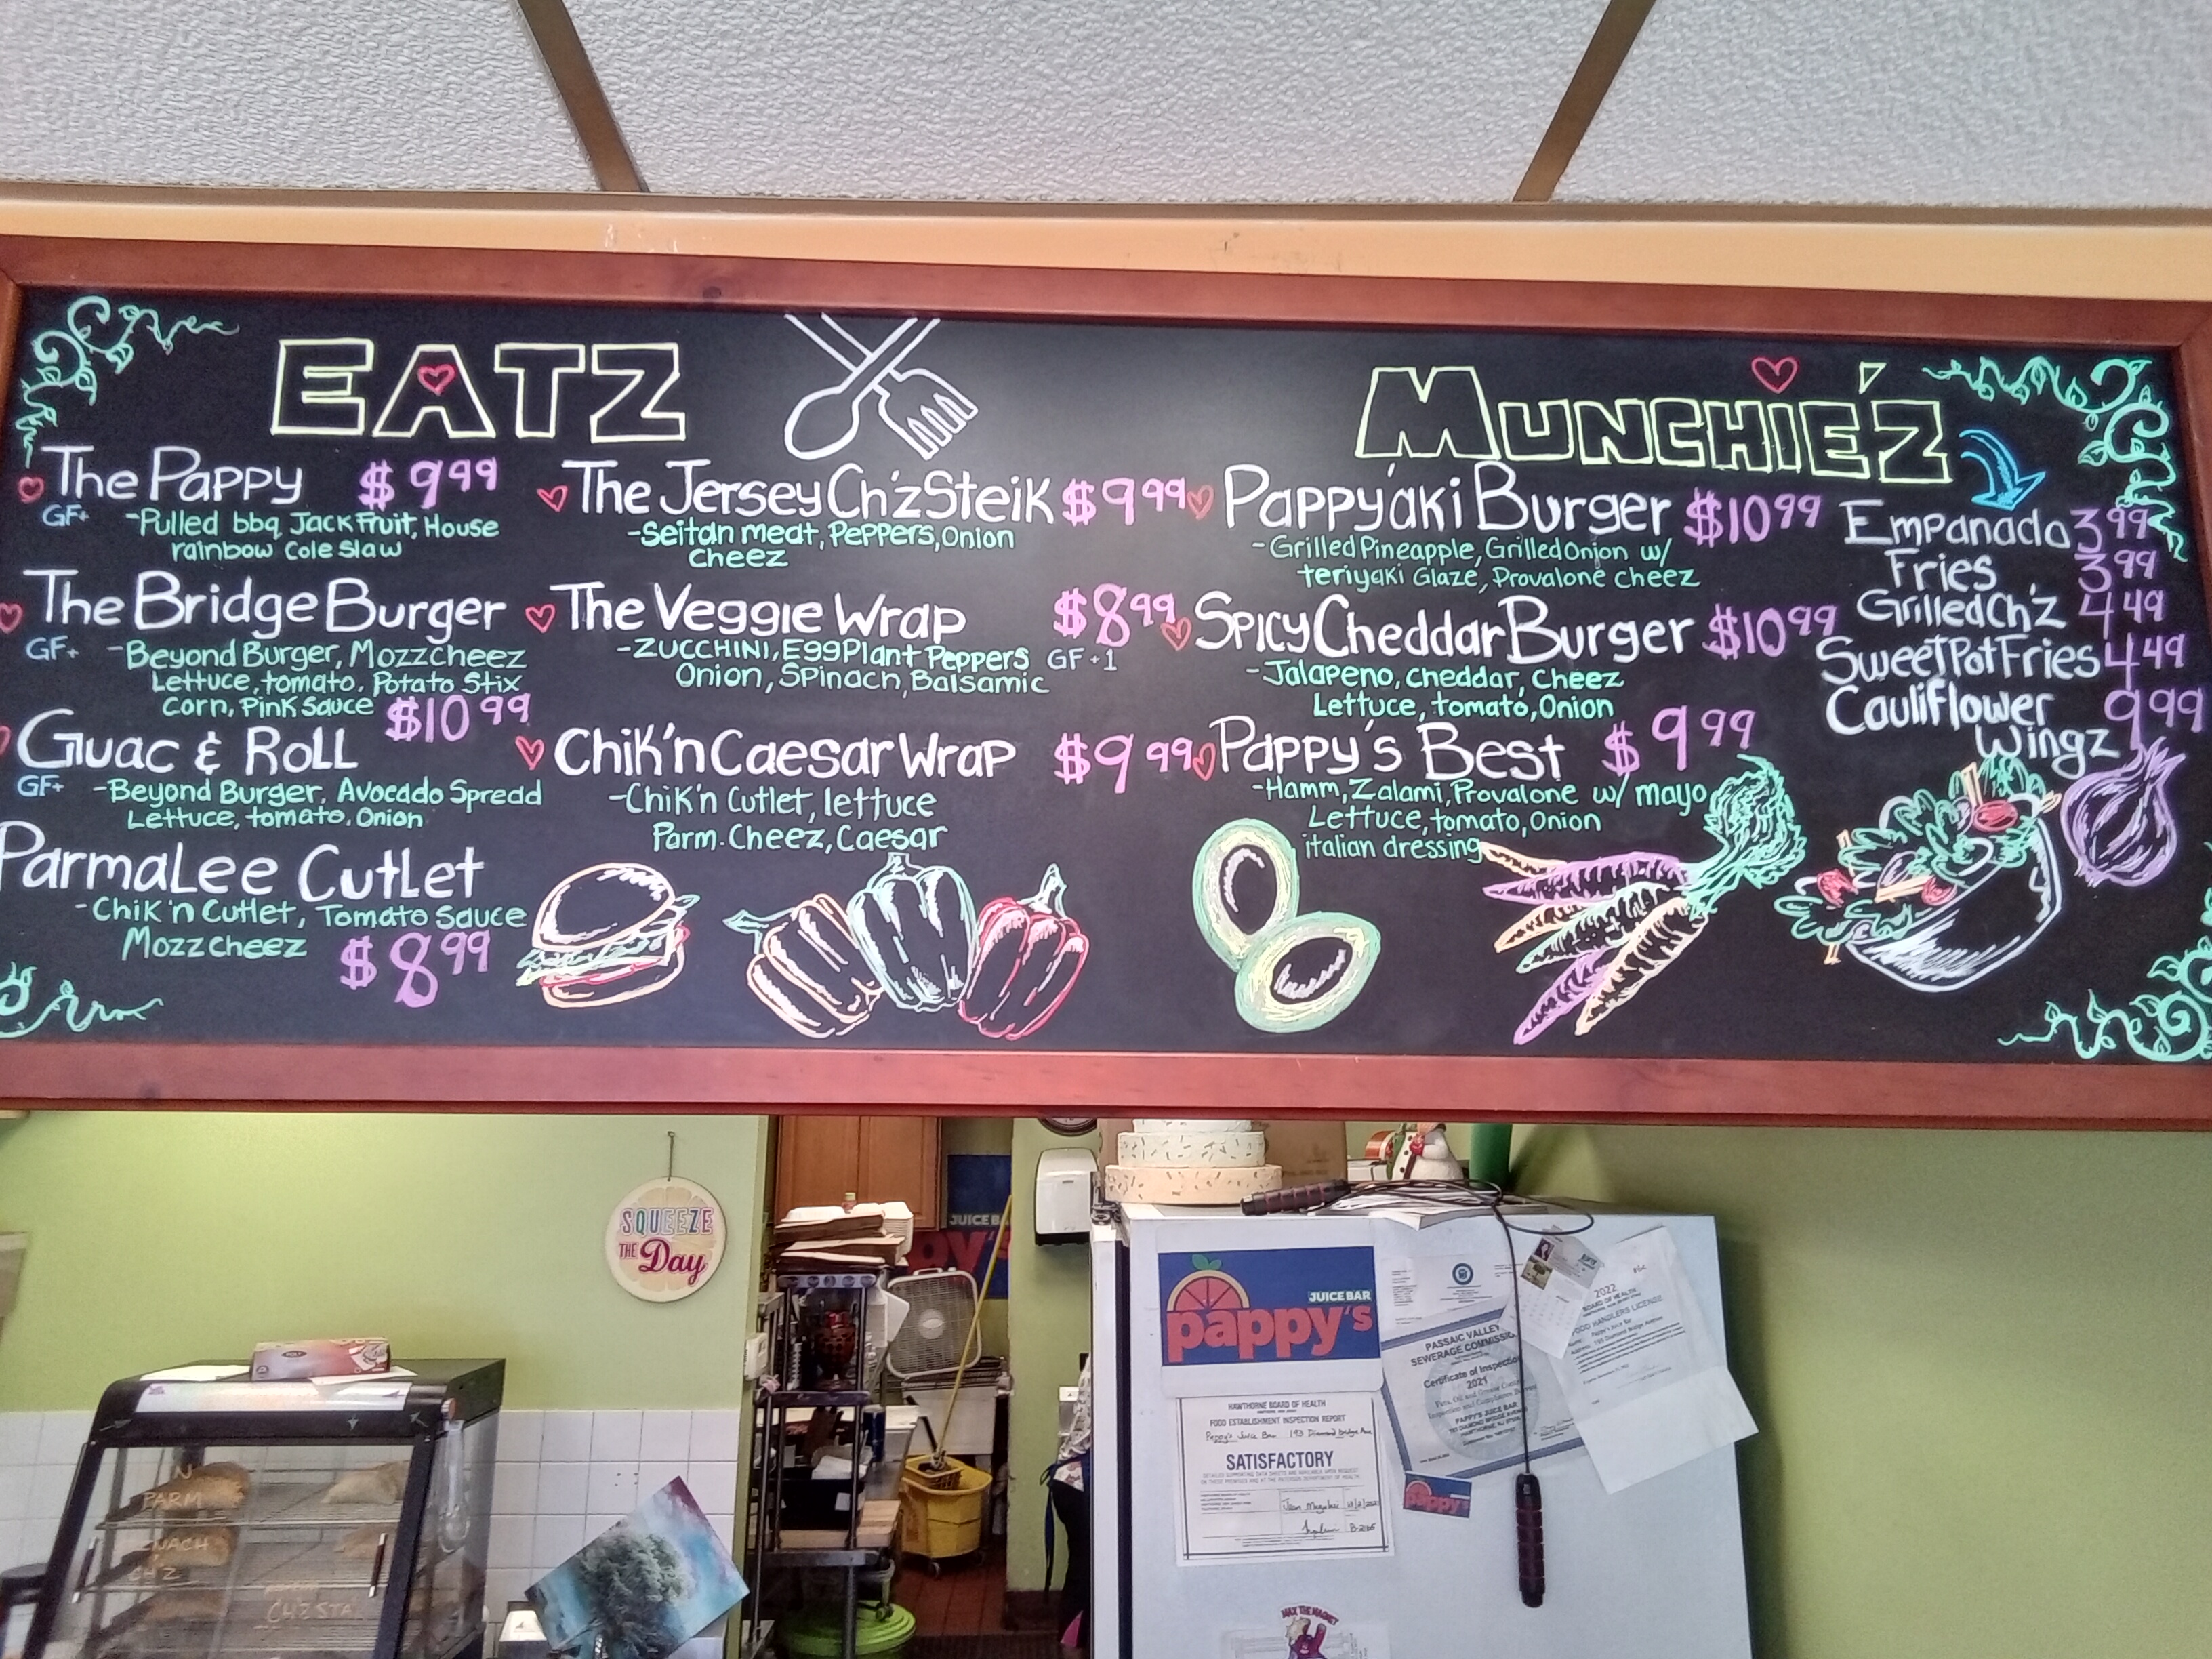 EATZ
The Pappy $9.99
GF+ -Pulled bbq, Jack Fruit, House
rainbow Cole Slaw
The Bridge Burger
GF+ -Beyond Burger, Mozzcheez
Lettuce, tomato, Potato Stix
Corn, Pink Sauce $10.99
Guac & Roll
GF+ -Beyond Burger, Avocado Spread
Lettuce, tomato, Onion
ParmaLee Cutlet
-Chik'n Cutlet, Tomato Sauce
Mozzcheez $8.99
The Jersey Ch'z Steik $9.99
-Seitan meat, Peppers, Onion
Cheez
The Veggie Wrap $8.99
-Zucchini, EggPlant Peppers GF+1
Onion, Spinach, Balsamic
Chik'n Caesar Wrap $9.99
-Chik'n Cutlet, lettuce
Parm. Cheez, Caesar
Munchie'z
Pappy'aki Burger $10.99
-Grilled Pineapple, Grilled Onion w/
teriyaki Glaze, Provalone cheez
Spicy Cheddar Burger $10.99
-Jalapeno, Cheddar, Cheez
Lettuce, tomato, Onion
Pappy's Best $9.99
-Hamm, Zalami, Provalone w/ mayo
Lettuce, tomato, Onion
italian dressing
Empanada 3.99
Fries 3.99
Grilled Ch'z 4.49
Sweet Pot Fries 4.49
Cauliflower 9.99
Wingz
SQUEEZE
THE Day
JUICE BA
py's
JUICE BAR
pappy's
HAWTHORNE BOARD OF HEALTH
FOOD ESTABLISHMENT INSPECTION REPORT
Pappy's Juice Bar 193 Diamond Bridge Ave
SATISFACTORY
PASSAIC VALLEY
SEWERAGE COMMISSIO
Certificate of Inspection
2021
Fats, Oil and Grease Control
Inspection and Compliance
PAPPY'S JUICE BAR
2022
BOARD OF HEALTH
FOOD HANDLERS LICENSE
Pappy's Juice Bar
pappy's
MAX THE MAGNET
N
PARM
NACH
CH'Z